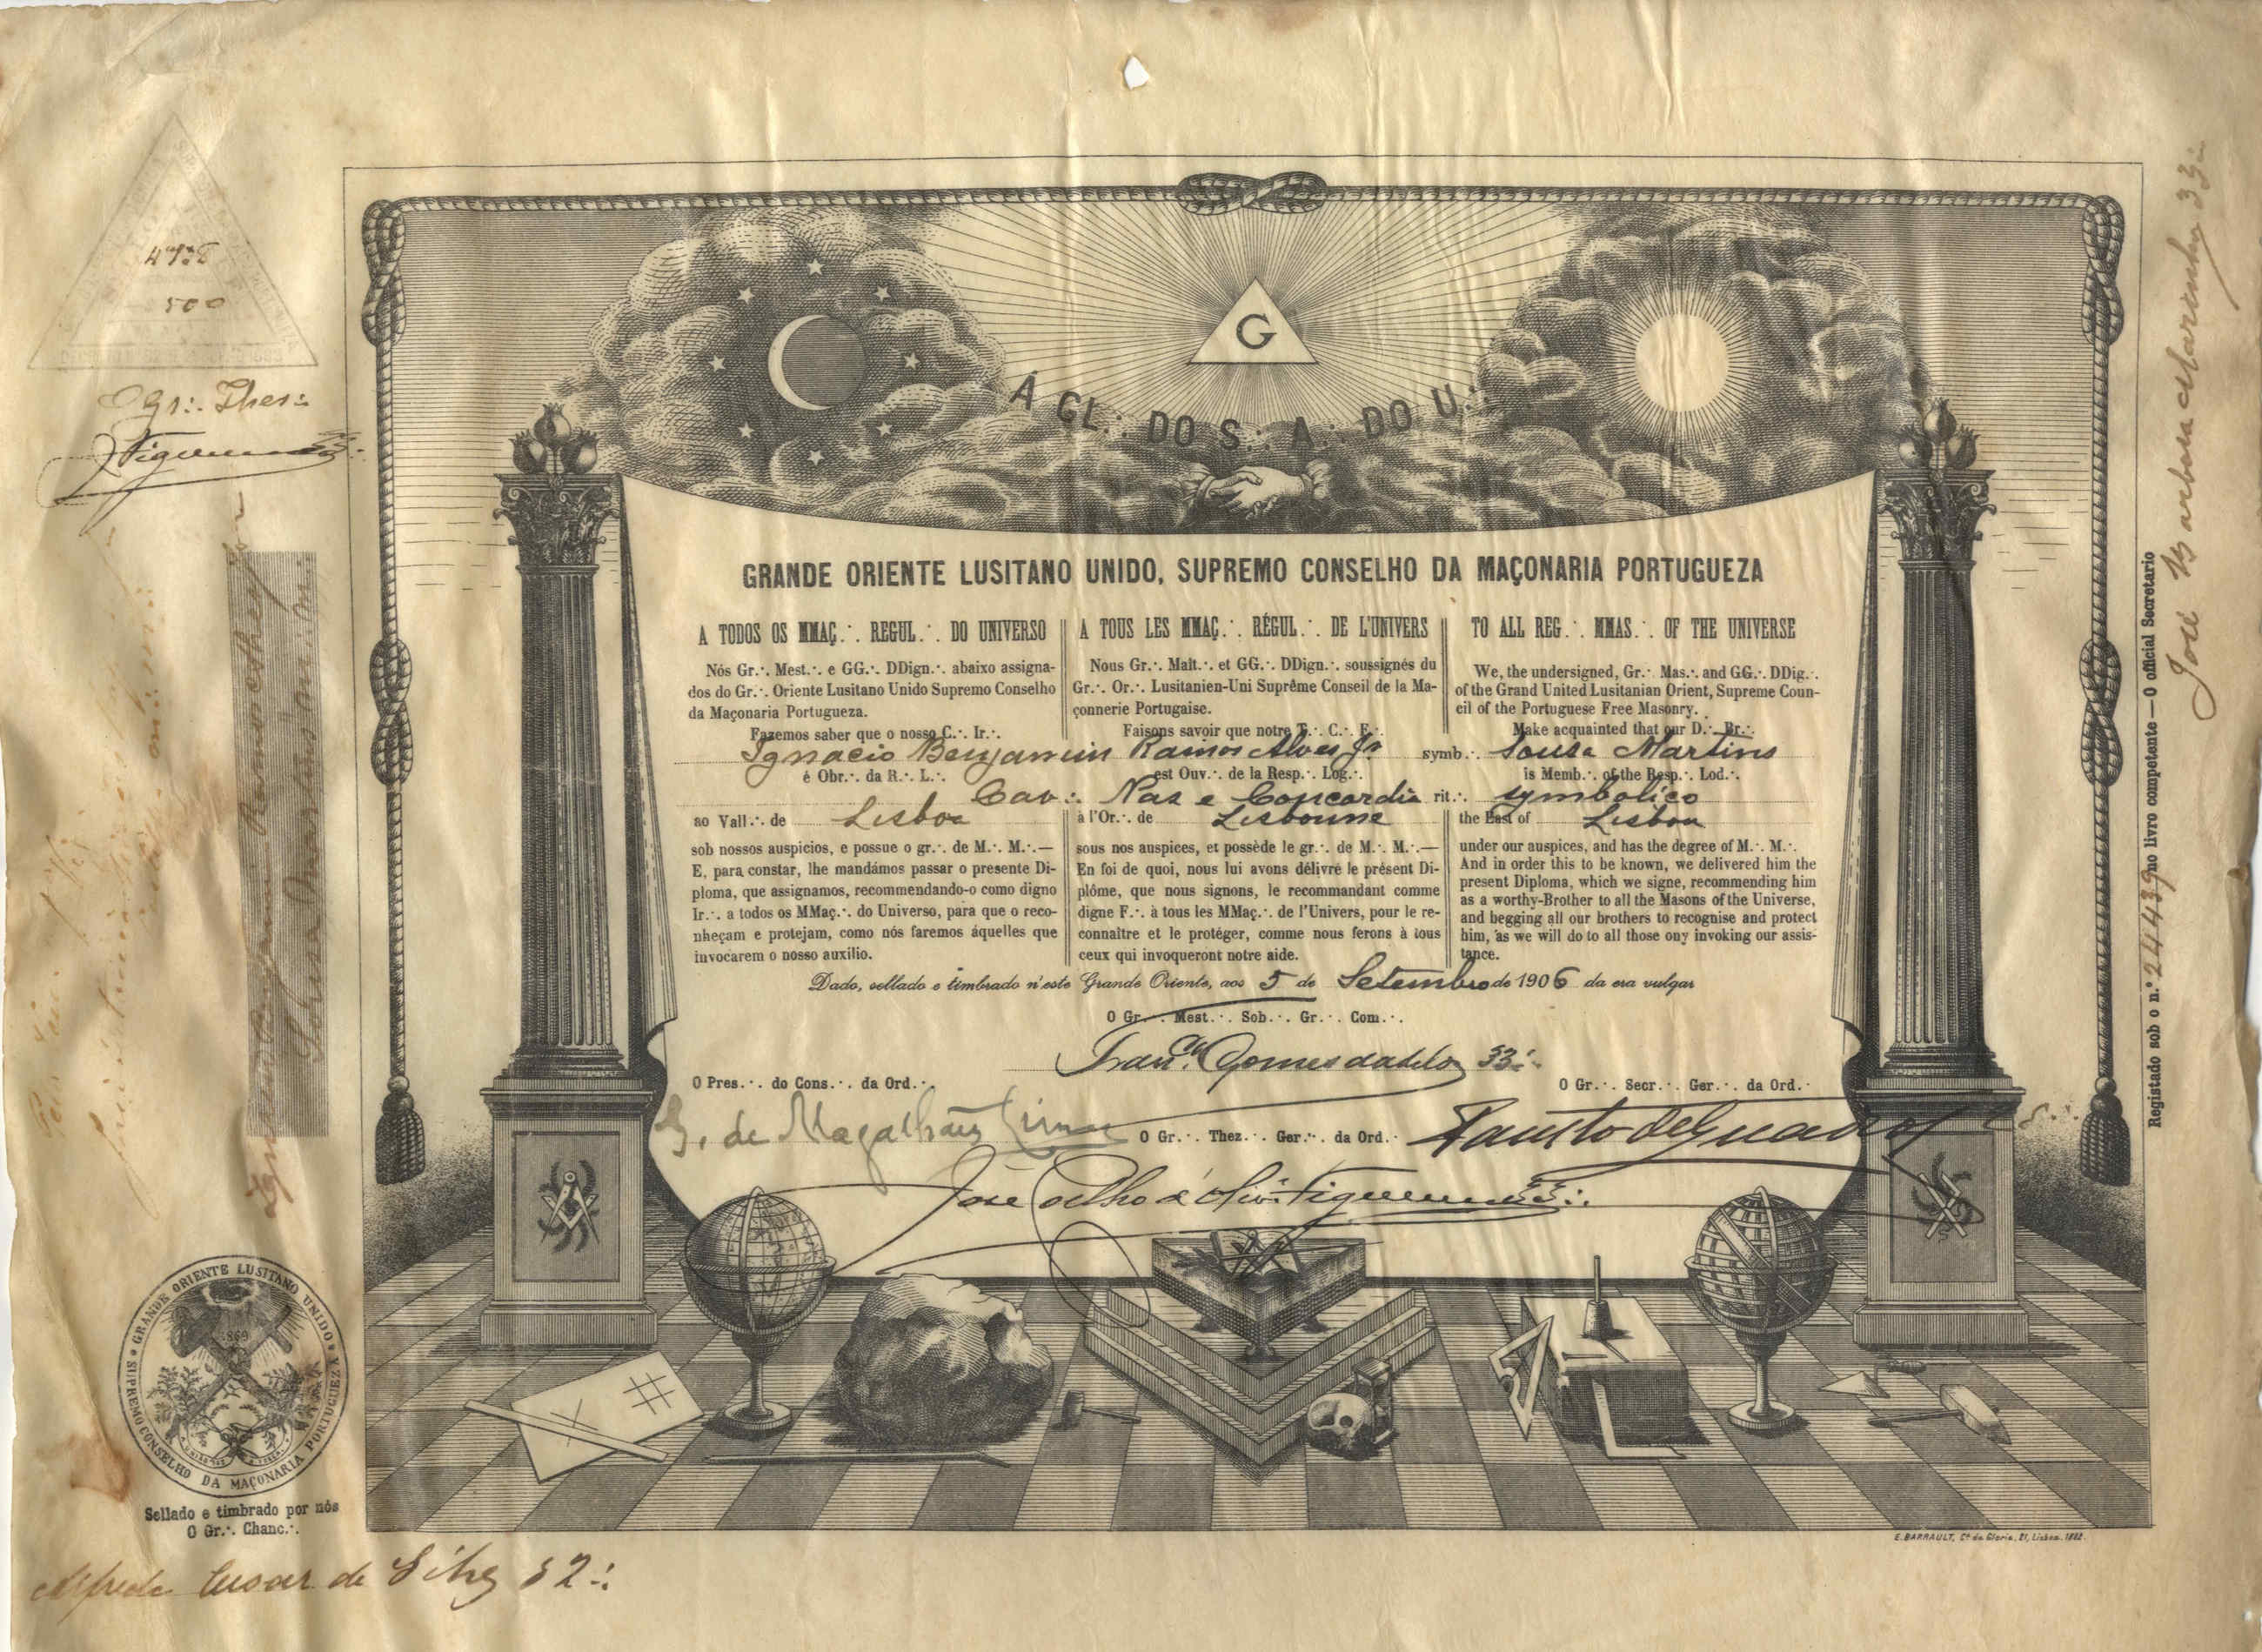 4738
500
O Gr∴ Thes∴
G
Á GL∴ DO S∴ A∴ DO U∴
GRANDE ORIENTE LUSITANO UNIDO, SUPREMO CONSELHO DA MAÇONARIA PORTUGUEZA
A TODOS OS MMAÇ∴ REGUL∴ DO UNIVERSO
Nós Gr∴ Mest∴ e GG∴ DDign∴ abaixo assigna-
dos do Gr∴ Oriente Lusitano Unido Supremo Conselho
da Maçonaria Portugueza.
Fazemos saber que o nosso C∴ Ir∴
A TOUS LES MMAÇ∴ RÉGUL∴ DE L'UNIVERS
Nous Gr∴ Maît∴ et GG∴ DDign∴ soussignés du
Gr∴ Or∴ Lusitanien-Uni Suprême Conseil de la Ma-
çonnerie Portugaise.
Faisons savoir que notre T∴ C∴ F∴
TO ALL REG∴ MMAS∴ OF THE UNIVERSE
We, the undersigned, Gr∴ Mas∴ and GG∴ DDig∴
of the Grand United Lusitanian Orient, Supreme Coun-
cil of the Portuguese Free Masonry.
Make acquainted that our D∴ Br∴
Ignacio Benjamin Ramos Alves Jr symb∴ Sousa Martins
é Obr∴ da R∴ L∴ est Ouv∴ de la Resp∴ Log∴ is Memb∴ of the Resp∴ Lod∴
Cav∴ Paz e Concordia rit∴ symbolico
ao Vall∴ de Lisboa à l'Or∴ de Lisbonne the East of Lisbon
sob nossos auspicios, e possue o gr∴ de M∴ M∴—
E, para constar, lhe mandámos passar o presente Di-
ploma, que assignamos, recommendando-o como digno
Ir∴ a todos os MMaç∴ do Universo, para que o reco-
nheçam e protejam, como nós faremos áquelles que
invocarem o nosso auxilio.
sous nos auspices, et possède le gr∴ de M∴ M∴—
En foi de quoi, nous lui avons délivré le présent Di-
plôme, que nous signons, le recommandant comme
digne F∴ à tous les MMaç∴ de l'Univers, pour le re-
connaître et le protéger, comme nous ferons à tous
ceux qui invoqueront notre aide.
under our auspices, and has the degree of M∴ M∴
And in order this to be known, we delivered him the
present Diploma, which we signe, recommending him
as a worthy-Brother to all the Masons of the Universe,
and begging all our brothers to recognise and protect
him, as we will do to all those ony invoking our assis-
tance.
Dado, sellado e timbrado n'este Grande Oriente, aos 5 de Setembro de 1906 da era vulgar
O Gr∴ Mest∴ Sob∴ Gr∴ Com∴
Gomes da Silva 33∴
O Pres∴ do Cons∴ da Ord∴
S. de Magalhães Lima
O Gr∴ Secr∴ Ger∴ da Ord∴
Fausto de Quadros
O Gr∴ Thez∴ Ger∴ da Ord∴
José Coelho
GRANDE ORIENTE LUSITANO UNIDO
SUPREMO CONSELHO DA MAÇONARIA PORTUGUEZA
1869
Sellado e timbrado por nós
O Gr∴ Chanc∴
Alfredo Cesar da Silva 32∴
Registado sob o n.º 24439 no livro competente — O official Secretario
José Barbosa Marinho 33∴
E. BARRAULT, Cª da Gloria, 21, Lisboa. 1882.